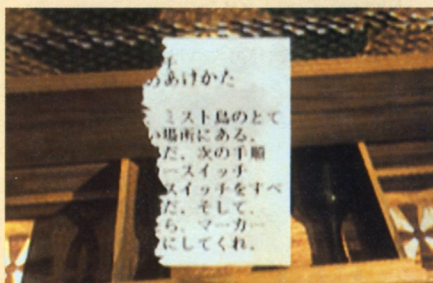 あけかた
ミスト島のとて
い場所にある。
だ、次の手順
ースイッチ
スイッチをすべ
だ。そして、
ら、マーカー
にしてくれ。